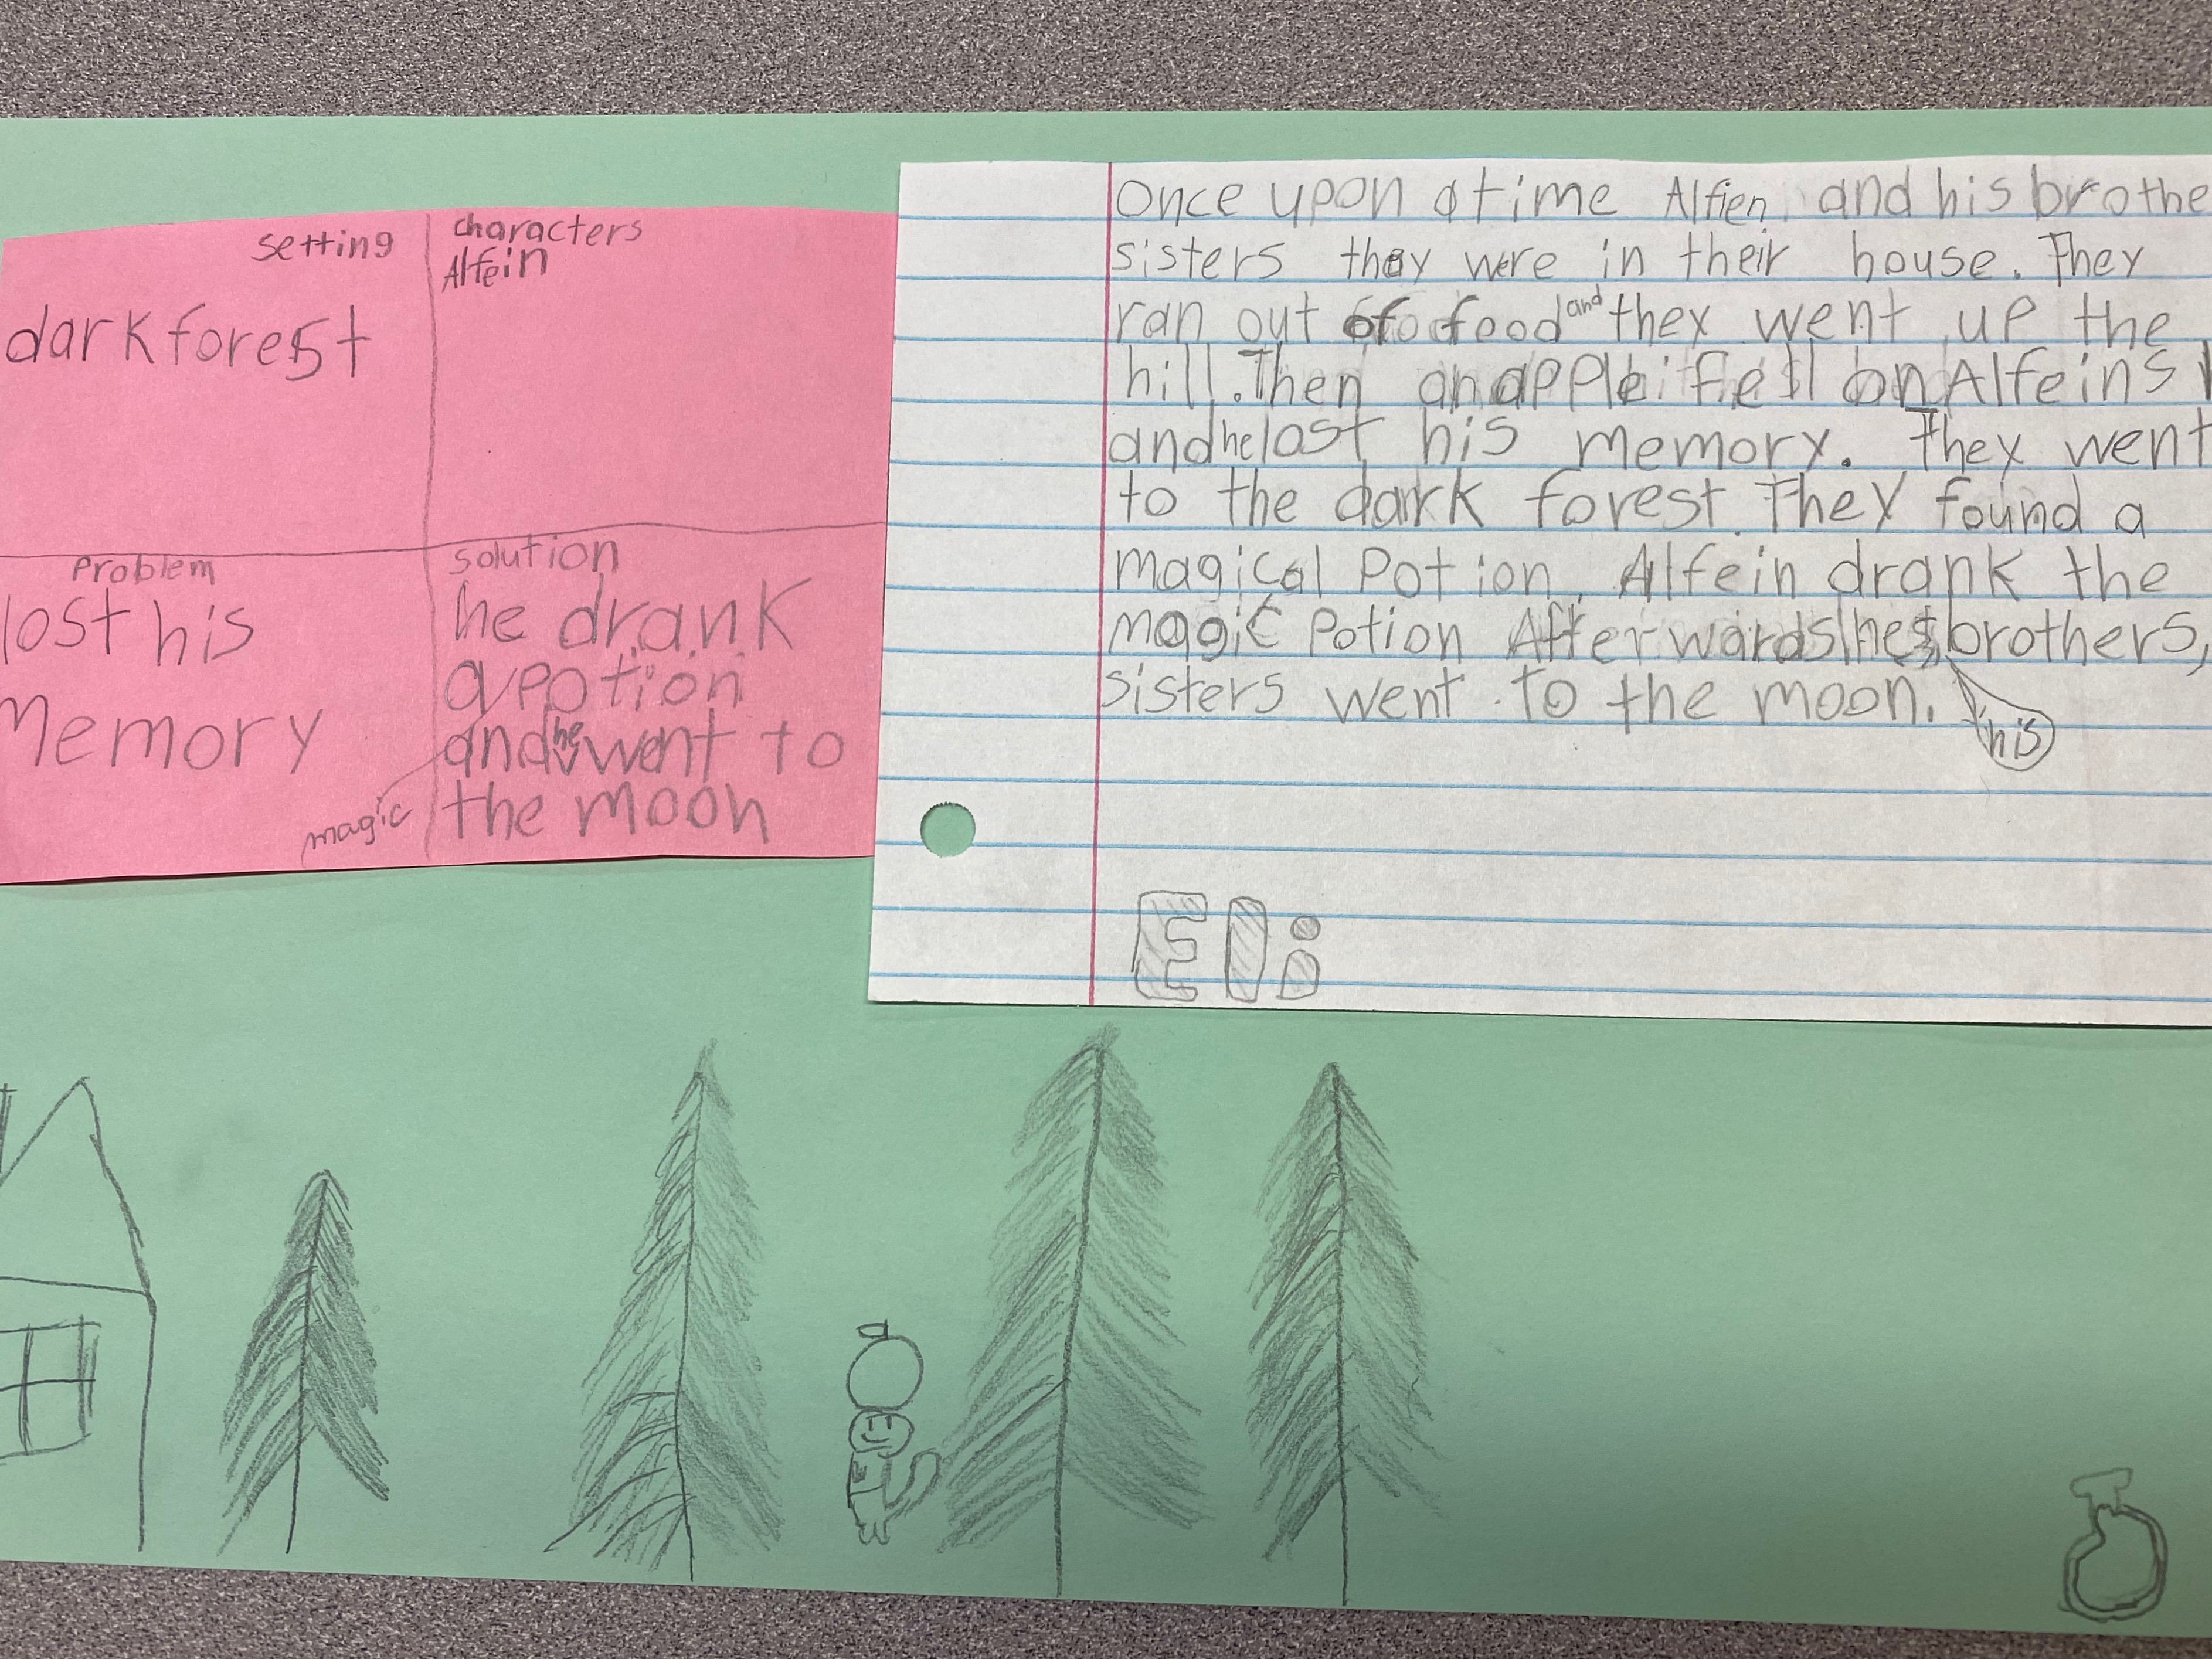 setting
dark forest
characters
Alfein
Problem
lost his
Memory
solution
he drank
a potion
and he went to
the moon
magic
Once upon a time Alfien and his brothe
sisters they were in their house. They
ran out of food and they went up the
hill. Then an apple fell on Alfeins
and he lost his memory. They went
to the dark forest. They found a
magical Potion. Alfein drank the
magic Potion Afterwards he, brothers,
sisters went to the moon.
his
Eli